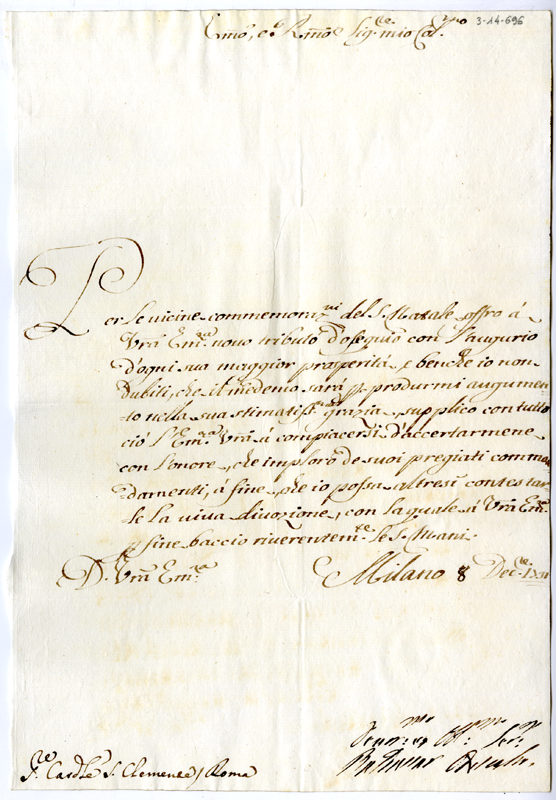 Emo, e Rmo Sigre mio Col.mo
3-14-696
Per le vicine commemorazni del S. Natale offro á
Vrã Em.za novo tributo d'ossequio con l'augurio
d'ogni sua maggior prosperitá, e benche io non
dubiti, che il medemo sará p produrmi augumen
to nella sua stimatiss.ma grazia, supplico con tutto
ció l'Em.za Vrã á compiacersi d'accertarmene
con l'onore, che imploro de suoi pregiati coman
damenti, á fine che io possa altresi contestar
le la viva divozione, con la quale á Vrã Em.za
p fine baccio riverentem.te le S. Mani.
D. Vrã Em.za
Milano 8 Dec.bre
Ser.
S.re Cardle S. Clemente / Roma